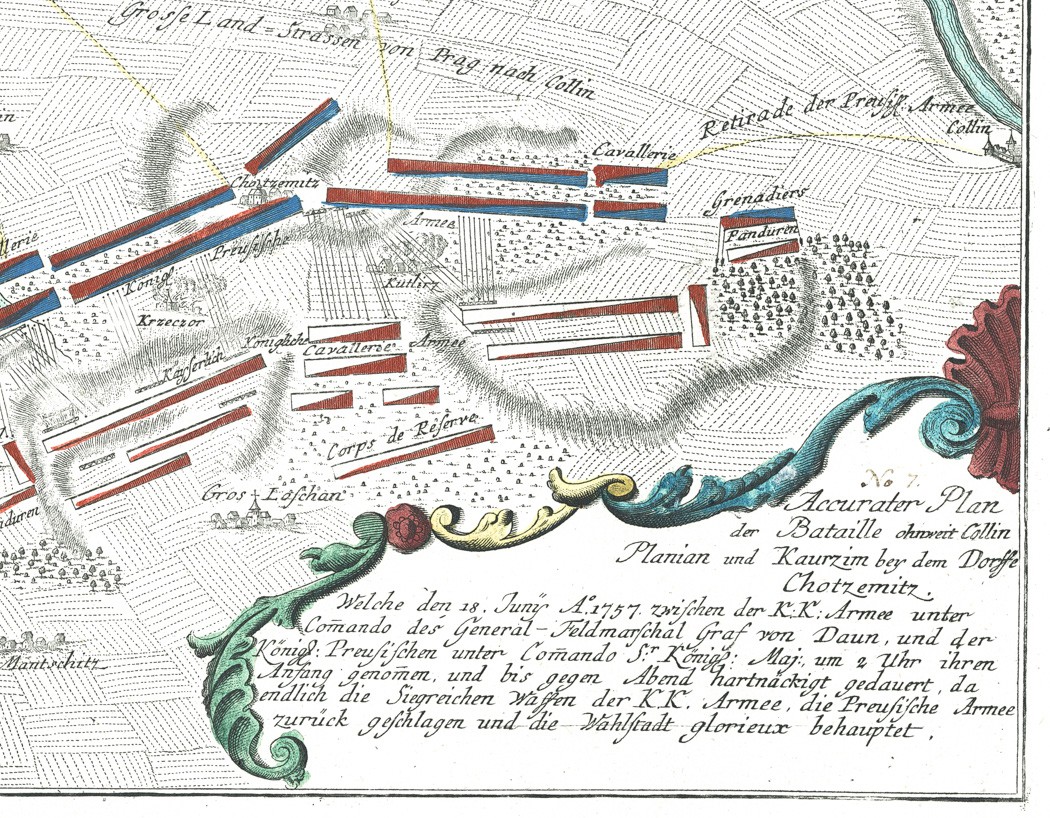 Grosse Land=Strassen von Prag nach Collin
Retirade der Preusß. Armee
Collin
Cavallerie
Chotzemitz
Grenadiers
Panduren
Armee
llerie
Preusische
Königl
Kutlirz
Krzeczor
Königliche
Cavallerie
Armee
Kayserlich
Corps de Reserve
duren
Gros-Loschan
Mantschitz
No 7.
Accurater Plan
der Bataille ohnweit Collin
Planian und Kaurzim bey dem Dorffe
Chotzemitz.
Welche den 18. Junÿ Aº.1757. zwischen der K:K: Armee unter
Com̄ando des General-Feldmarschal Graf von Daun, und der
Königl: Preusischen unter Com̄ando Sr. Königl: Maj: um 2 Uhr ihren
Anfang genom̄en, und bis gegen Abend hartnäckigt gedauert, da
endlich die Siegreichen Waffen der K.K. Armee, die Preusische Armee
zurück geschlagen und die Wahlstadt glorieux behauptet.